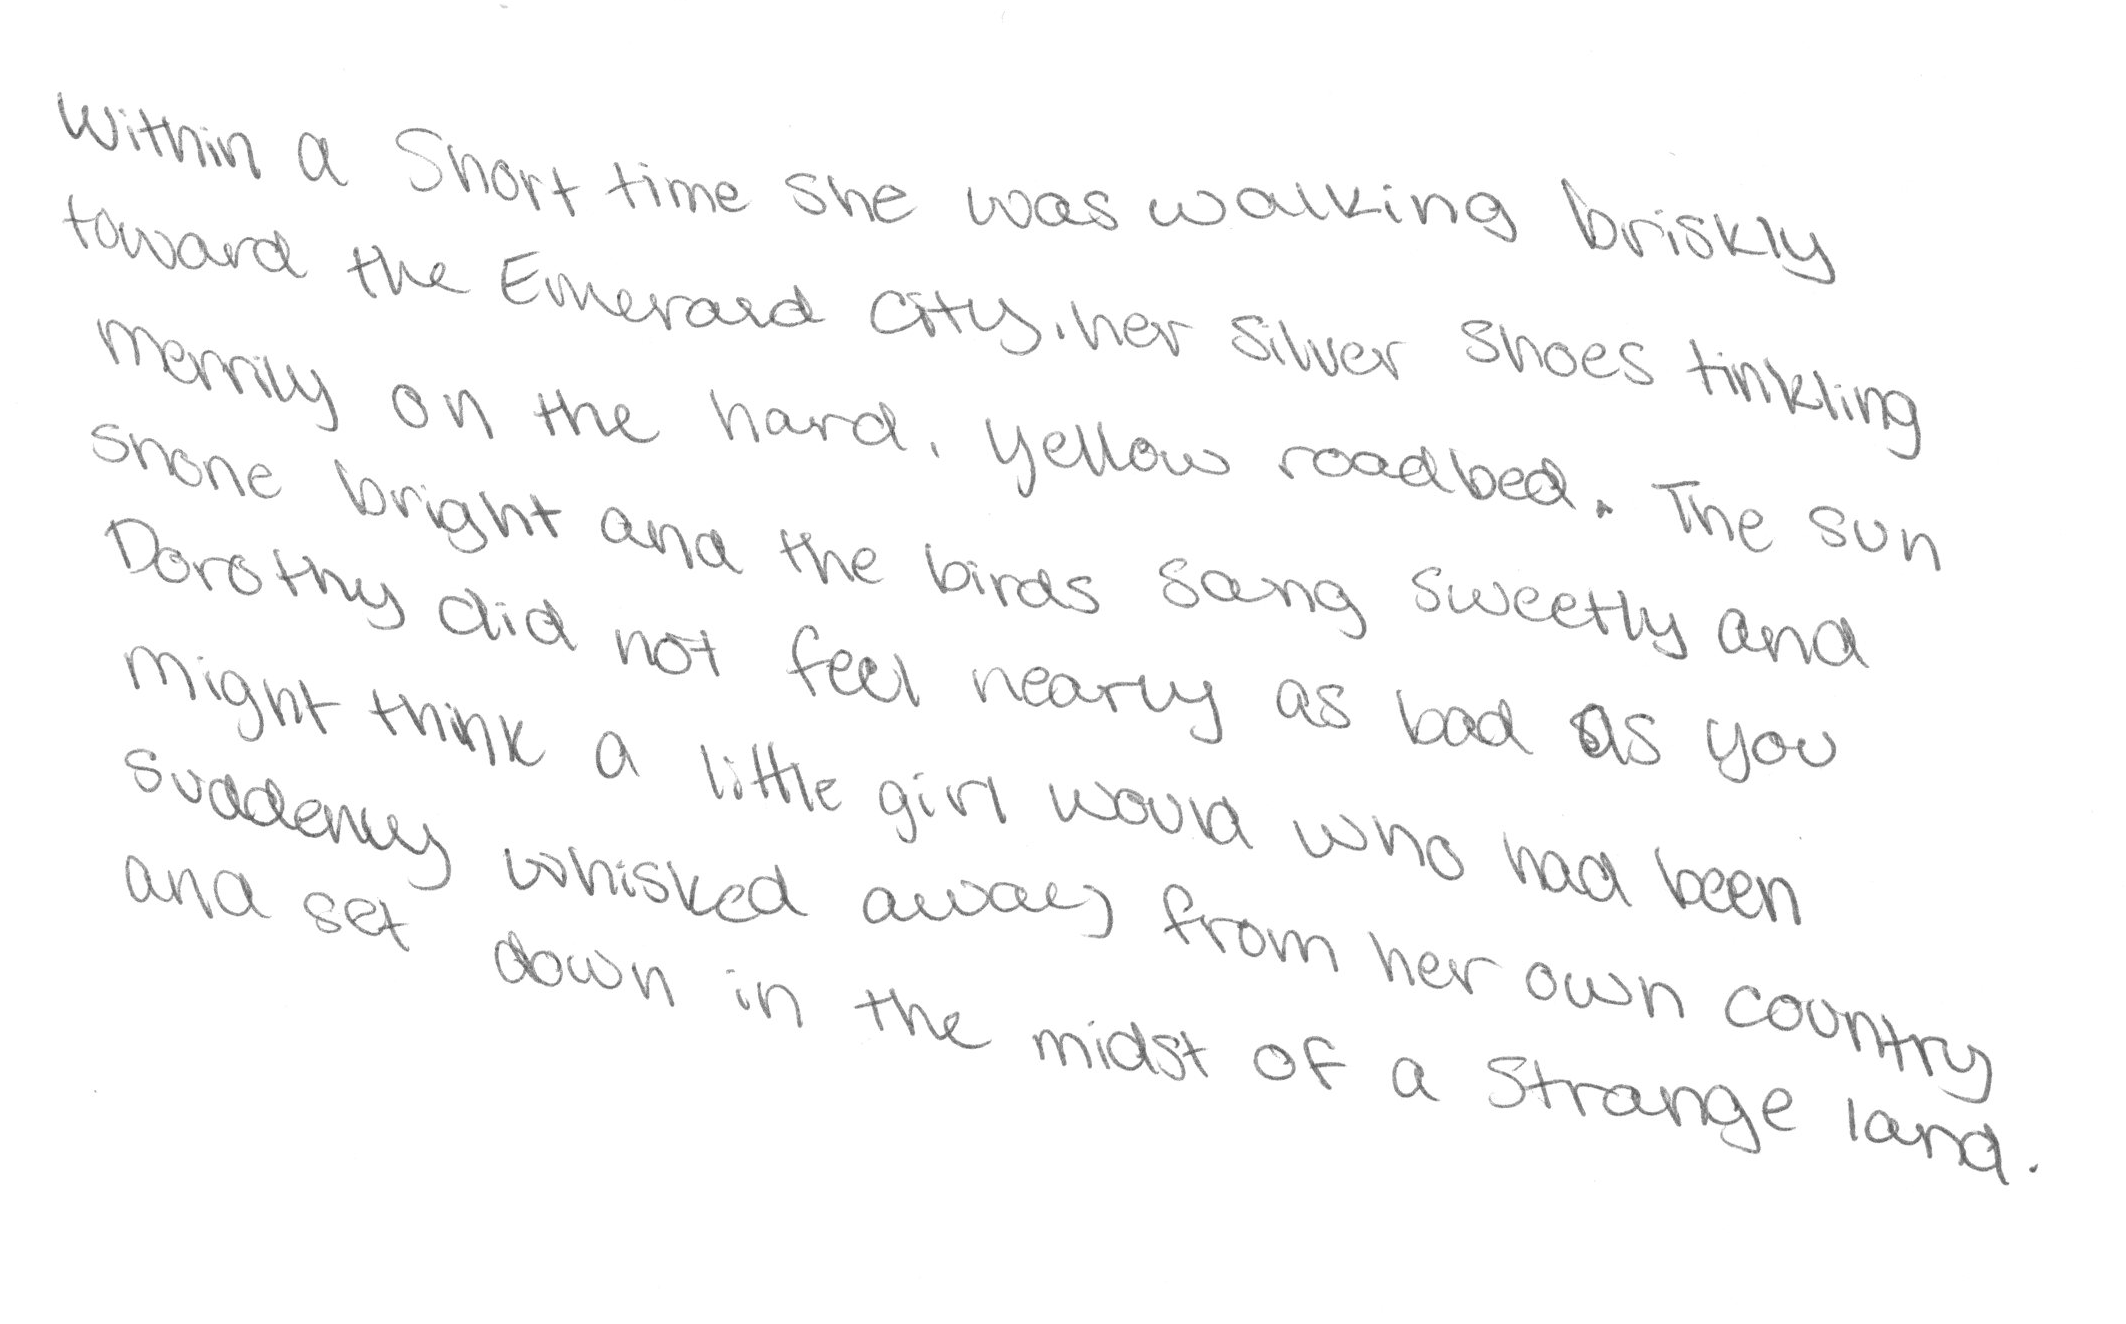 Within a Short time she was walking briskly
toward the Emerald City, her silver shoes tinkling
merrily on the hard, yellow roadbed. The sun
shone bright and the birds sang sweetly and
Dorothy did not feel nearly as bad as you
might think a little girl would who had been
suddenly whisked away from her own country
and set down in the midst of a strange land.